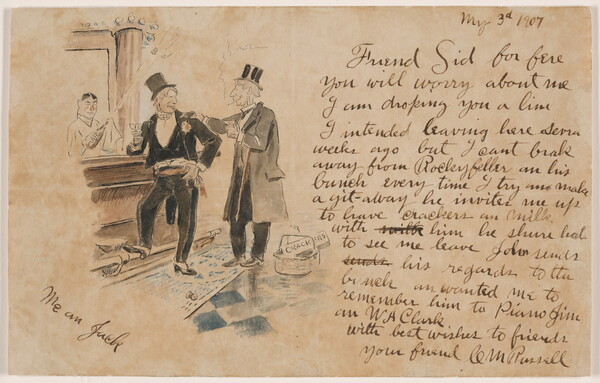 My 3d 1907
Friend Sid for fere
you will worry about me
I am droping you a line
I intended leaving here sevra
weeks ago but I cant brak
away from Rockyfeller an his
bunch every time I try and make
a git-away he invites me up
to have crackers an milk
with milk him he shure hate
to see me leave John sends
sends his regards to the
bunch an wanted me to
remember him to Piano Jim
an W A Clark
with best wishes to friends
your friend C M Russell
Me an Jack
CRACKERS